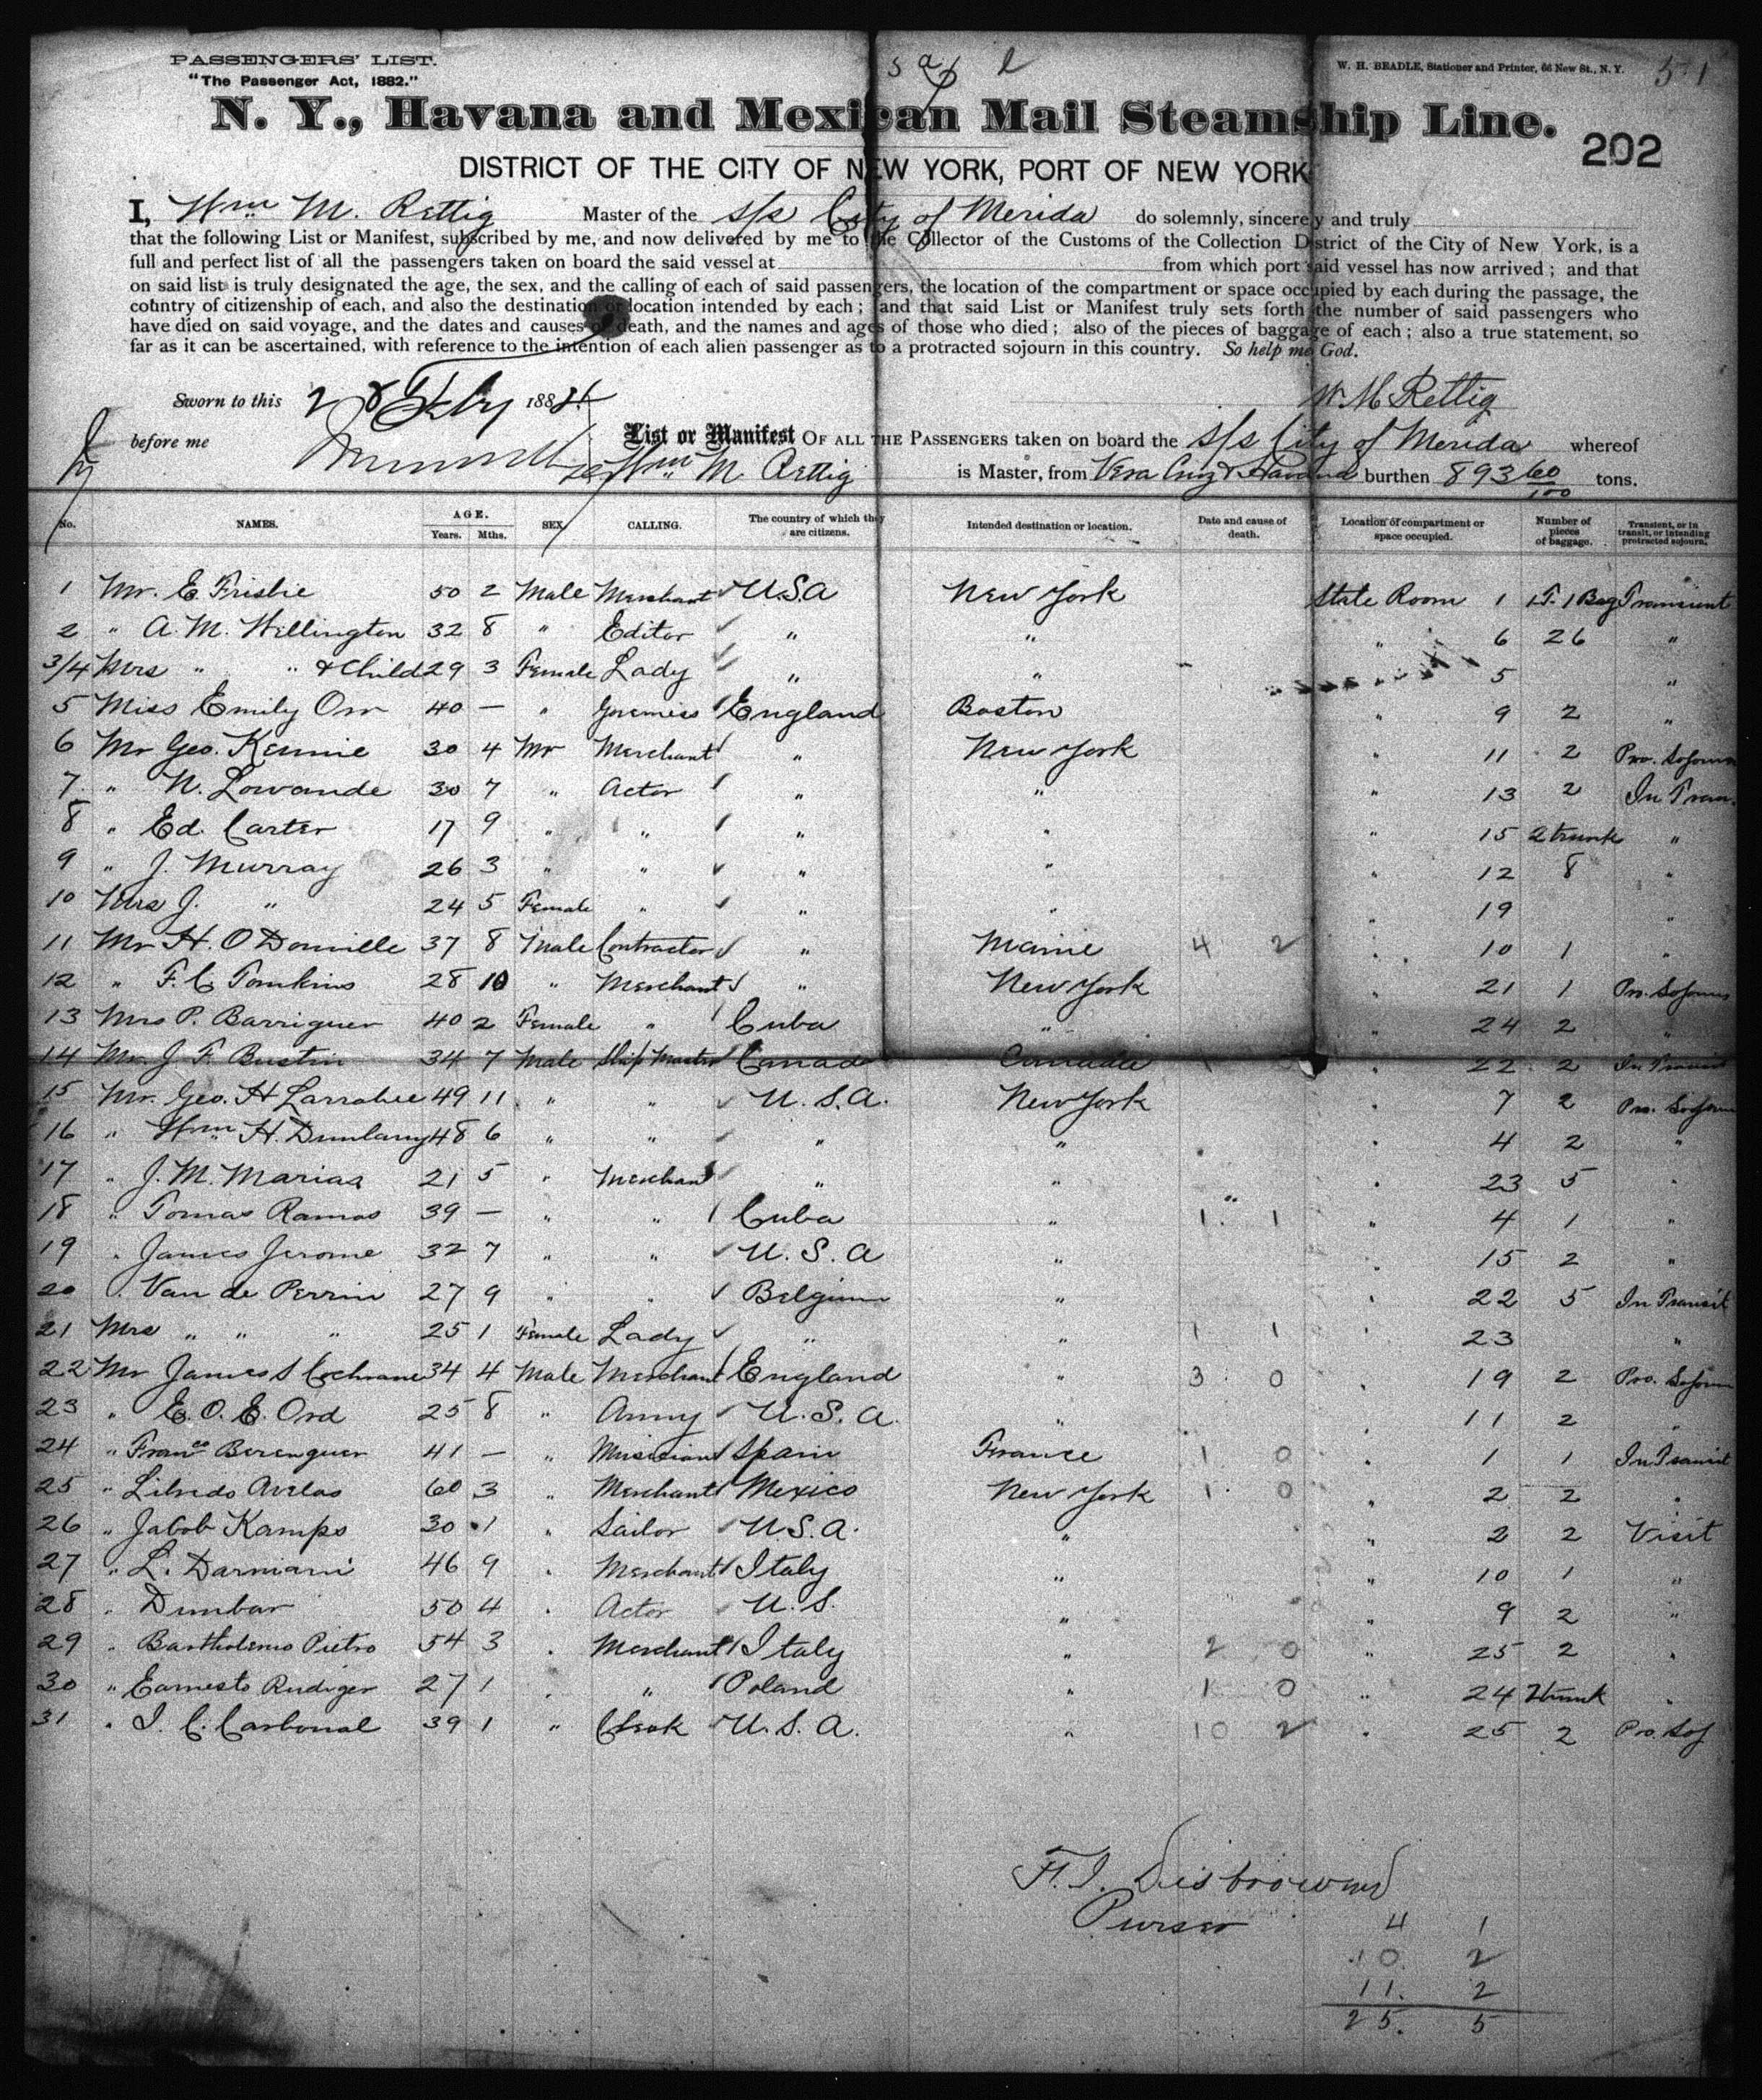 PASSENGERS' LIST.
"The Passenger Act, 1882."
W. H. BEADLE, Stationer and Printer, 66 New St., N. Y.
51
N. Y., Havana and Mexican Mail Steamship Line.
202
DISTRICT OF THE CITY OF NEW YORK, PORT OF NEW YORK
I, Wm M. Rettig Master of the s/s City of Merida do solemnly, sincerely and truly
that the following List or Manifest, subscribed by me, and now delivered by me to the Collector of the Customs of the Collection District of the City of New York, is a
full and perfect list of all the passengers taken on board the said vessel at from which port said vessel has now arrived ; and that
on said list is truly designated the age, the sex, and the calling of each of said passengers, the location of the compartment or space occupied by each during the passage, the
country of citizenship of each, and also the destination or location intended by each ; and that said List or Manifest truly sets forth the number of said passengers who
have died on said voyage, and the dates and causes of death, and the names and ages of those who died ; also of the pieces of baggage of each ; also a true statement, so
far as it can be ascertained, with reference to the intention of each alien passenger as to a protracted sojourn in this country. So help me God.
Sworn to this 28 Feby 1884
W M Rettig
before me
List or Manifest OF ALL THE PASSENGERS taken on board the s/s City of Merida whereof
Wm M. Rettig is Master, from Vera Cruz & Havana burthen 893 60/100 tons.
No. NAMES. AGE. Years. Mths. SEX. CALLING. The country of which they are citizens. Intended destination or location. Date and cause of death. Location of compartment or space occupied. Number of pieces of baggage. Transient, or in transit, or intending protracted sojourn.
1 Mr. E Frisbie 50 2 Male Merchant USA New York State Room 1 1T. 1 Bag Transient
2 " A. M. Wellington 32 8 " Editor " " " 6 26 "
3/4 Mrs " " & Child 29 3 Female Lady " " 5 "
5 Miss Emily Orr 40 — " Governess England Boston " 9 2 "
6 Mr Geo. Kennie 30 4 Mr Merchant " New York " 11 2 Pro. Sojourn
7 " N. Lowande 30 7 " Actor " " " 13 2 In Tran.
8 " Ed. Carter 17 9 " " " " " 15 2 trunk "
9 " J. Murray 26 3 " " " " " 12 8 "
10 Mrs J. " 24 5 Female " " " " 19 "
11 Mr H. O Donville 37 8 Male Contractor " Maine 4 2 " 10 1 "
12 " F. C Tomkins 28 10 " Merchant " New York " 21 1 Pro. Sojourn
13 Mrs P. Barriguer 40 2 Female " Cuba " " 24 2 "
14 Mr. J F. Bustin 34 7 Male Ship Master Canada Canada 22 2 In Transit
15 Mr. Geo. H Larrabee 49 11 " " U. S. A. New York " 7 2 Pro. Sojourn
16 " Wm H. 48 6 " " " " " 4 2 "
17 " J. M. Marias 21 5 " Merchant " " " 23 5 "
18 " Tomas Ramos 39 — " " Cuba " 1 1 " 4 1 "
19 " James Jerome 32 7 " " U. S. A " " 15 2 "
20 " Van de Perrin 27 9 " " Belgium " " 22 5 In Transit
21 Mrs " " " 25 1 Female Lady " " 1 1 " 23 "
22 Mr James S Cochrane 34 4 Male Merchant England " 3 0 " 19 2 Pro. Sojourn
23 " E. O. E. Ord 25 8 " Army U. S. A. " " 11 2 "
24 " Franco Berenguer 41 — " Musician Spain France 1 0 " 1 1 In Transit
25 " Librado Avelas 60 3 " Merchant Mexico New York 1 0 " 2 2 "
26 " Jacob Kamps 30 1 " Sailor U. S. A. " " 2 2 Visit
27 " L. Darmiani 46 9 " Merchant Italy " " 10 1 "
28 " Dunbar 50 4 " Actor U. S. " " 9 2 "
29 " Bartholemo Pietro 54 3 " Merchant Italy " 2 0 " 25 2 "
30 " Earnesto Rudiger 27 1 " " Poland " 1 0 " 24 2 trunk "
31 " J. C. Carbonal 39 1 " Clerk U. S. A. " 10 2 " 25 2 Pro. Soj
Purser
4 1
10 2
11. 2
25. 5